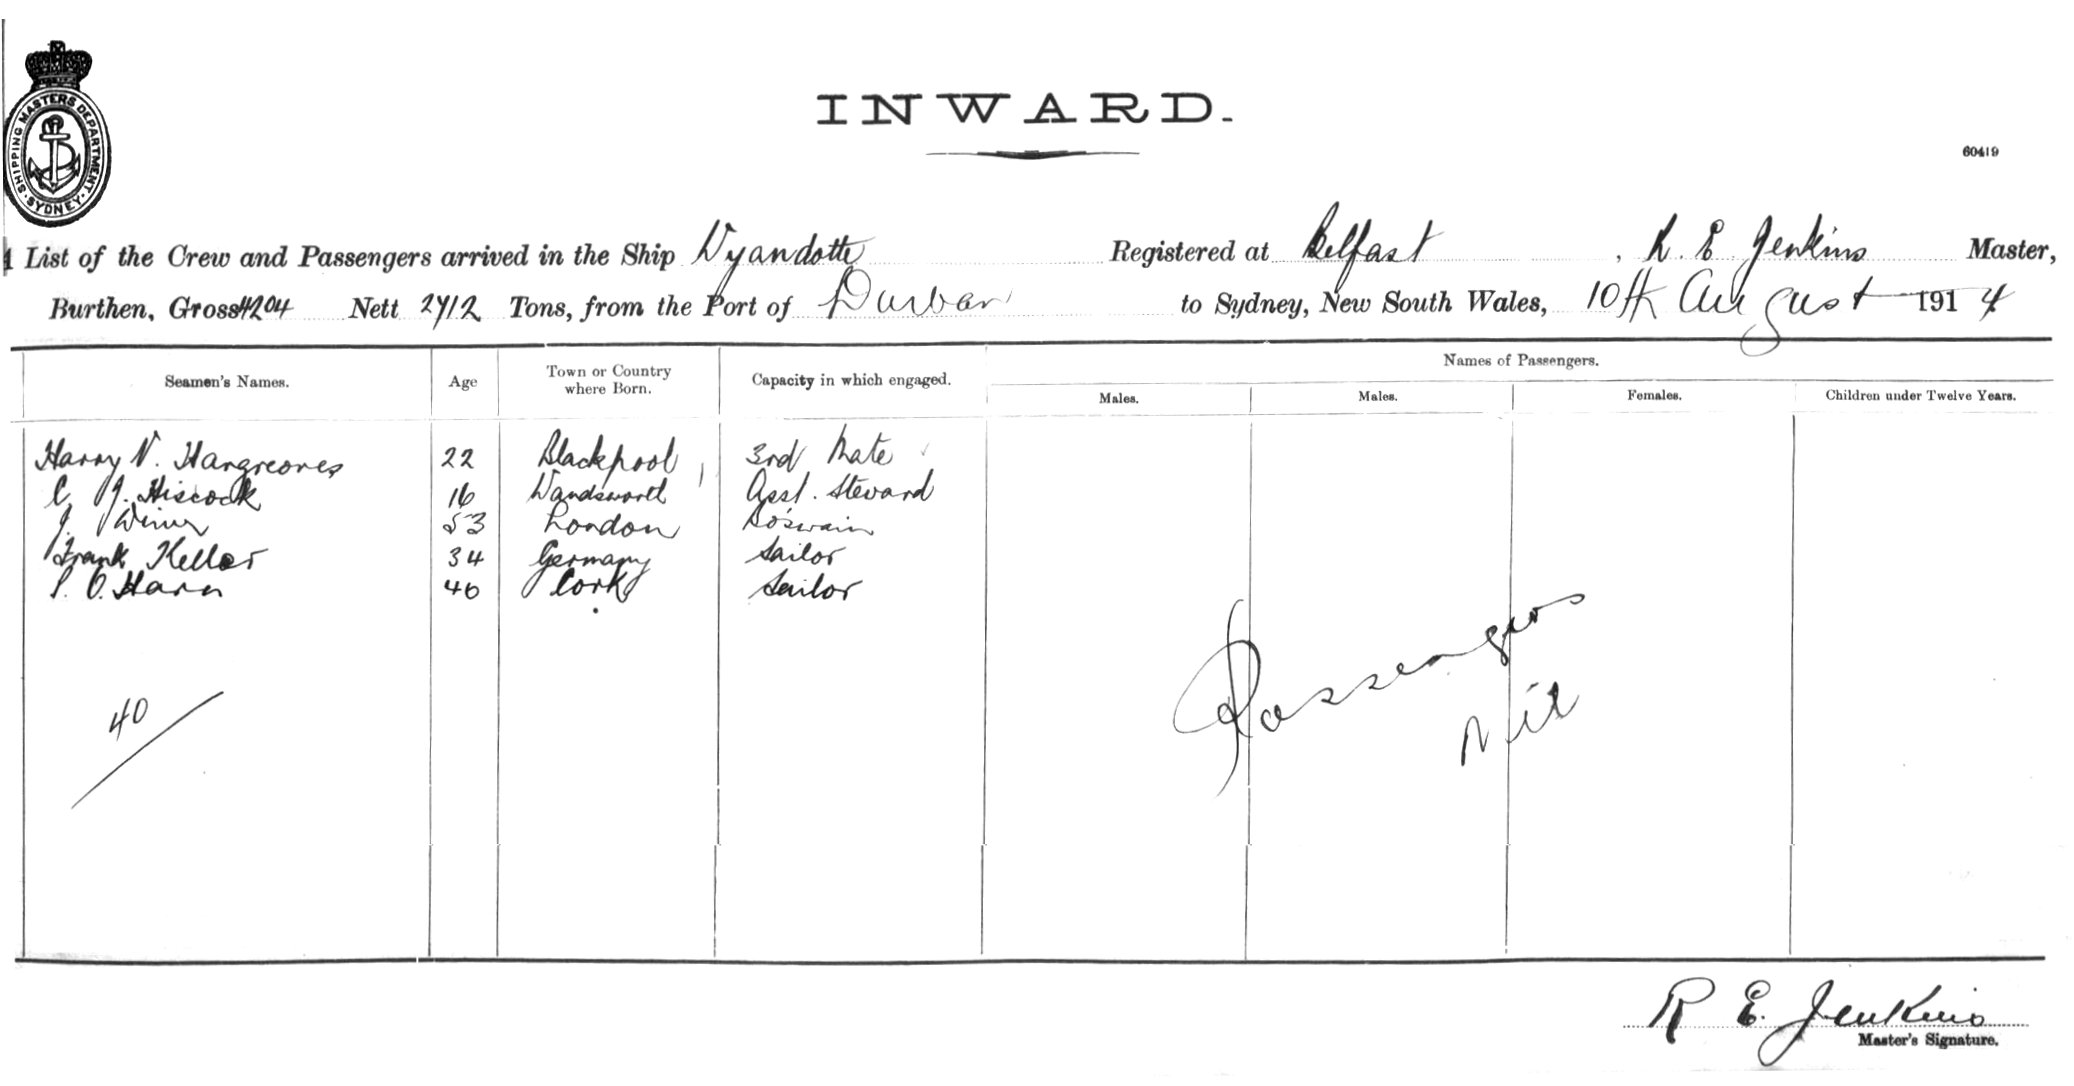 SHIPPING MASTERS DEPARTMENT
SYDNEY
INWARD.
60419
List of the Crew and Passengers arrived in the Ship Wyandotte Registered at Belfast, R. E. Jenkins Master,
Burthen, Gross 4204 Nett 2712 Tons, from the Port of Durban to Sydney, New South Wales, 10th August 1914
Names of Passengers.
Seamen's Names. Age Town or Country where Born. Capacity in which engaged. Males. Males. Females. Children under Twelve Years.
Harry V. Hargreaves 22 Blackpool 3rd Mate
C. J. Hiscock 16 Wandsworth Asst. Steward
J. 53 London Bo'swain
Frank Keller 34 Germany Sailor
P. O.Hara 40 Cork Sailor
Passengers
Nil
40
R E. Jenkins
Master's Signature.